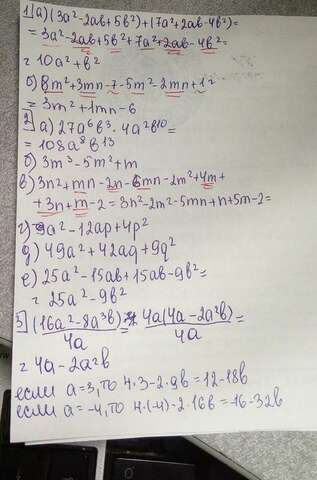 1. а) (3a²-2ab+5b²)+(7a²+2ab-4b²)=
= 3a²-2ab+5b²+7a²+2ab-4b²=
= 10a²+b²
б) 8m²+3mn-7-5m²-2mn+1=
= 3m²+1mn-6
2 а) 27a⁶b³·4a²b¹⁰=
= 108a⁸b¹³
б) 3m³-5m²+m
в) 3n²+mn-2n-6mn-2m²+4m+
+3n+m-2=3n²-2m²-5mn+n+5m-2=
г) 9a²-12ap+4p²
д) 49a²+42aq+9q²
е) 25a²-15ab+15ab-9b²=
= 25a²-9b²
3 (16a²-8a³b)/4a = 4a(4a-2a²b)/4a =
= 4a-2a²b
если a=3, то 4·3-2·9b=12-18b
если a=-4, то 4·(-4)-2·16b=-16-32b